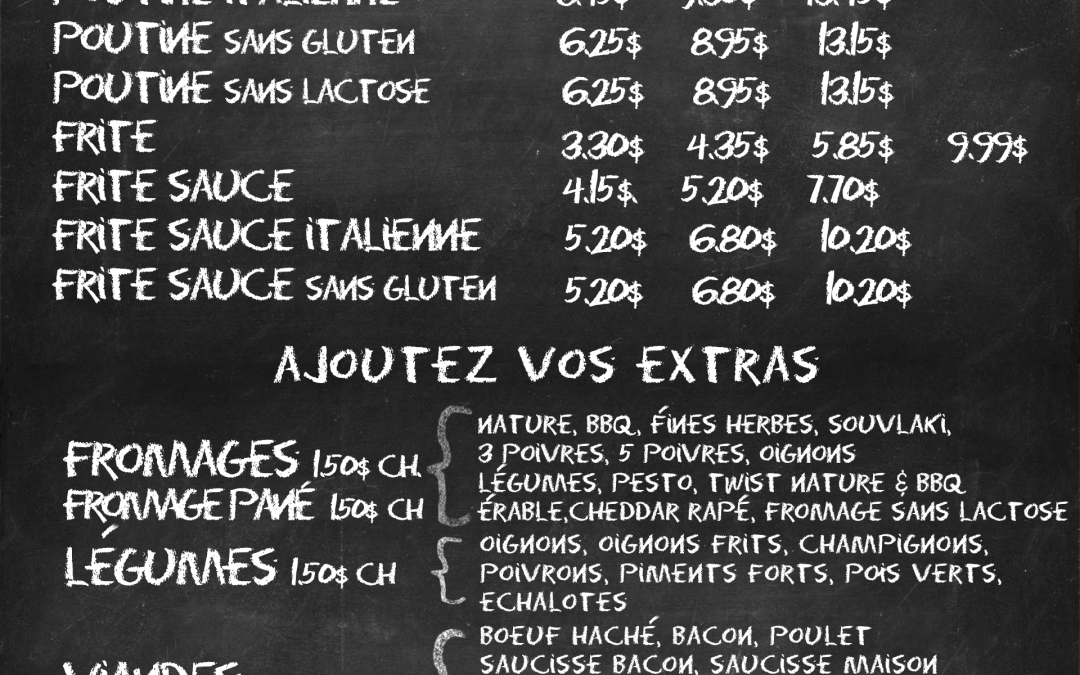 POUTINE ITALIENNE
POUTINE SANS GLUTEN 6.25$ 8.95$ 13.15$
POUTINE SANS LACTOSE 6.25$ 8.95$ 13.15$
FRITE 3.30$ 4.35$ 5.85$ 9.99$
FRITE SAUCE 4.15$ 5.20$ 7.70$
FRITE SAUCE ITALIENNE 5.20$ 6.80$ 10.20$
FRITE SAUCE SANS GLUTEN 5.20$ 6.80$ 10.20$
AJOUTEZ VOS EXTRAS
FROMAGES 1.50$ CH.
FROMAGE PANÉ 1.50$ CH
NATURE, BBQ, FINES HERBES, SOUVLAKI,
3 POIVRES, 5 POIVRES, OIGNONS
LÉGUMES, PESTO, TWIST NATURE & BBQ
ÉRABLE,CHEDDAR RAPÉ, FROMAGE SANS LACTOSE
LÉGUMES 1.50$ CH
OIGNONS, OIGNONS FRITS, CHAMPIGNONS,
POIVRONS, PIMENTS FORTS, POIS VERTS,
ECHALOTES
VIANDES
BOEUF HACHÉ, BACON, POULET
SAUCISSE BACON, SAUCISSE MAISON